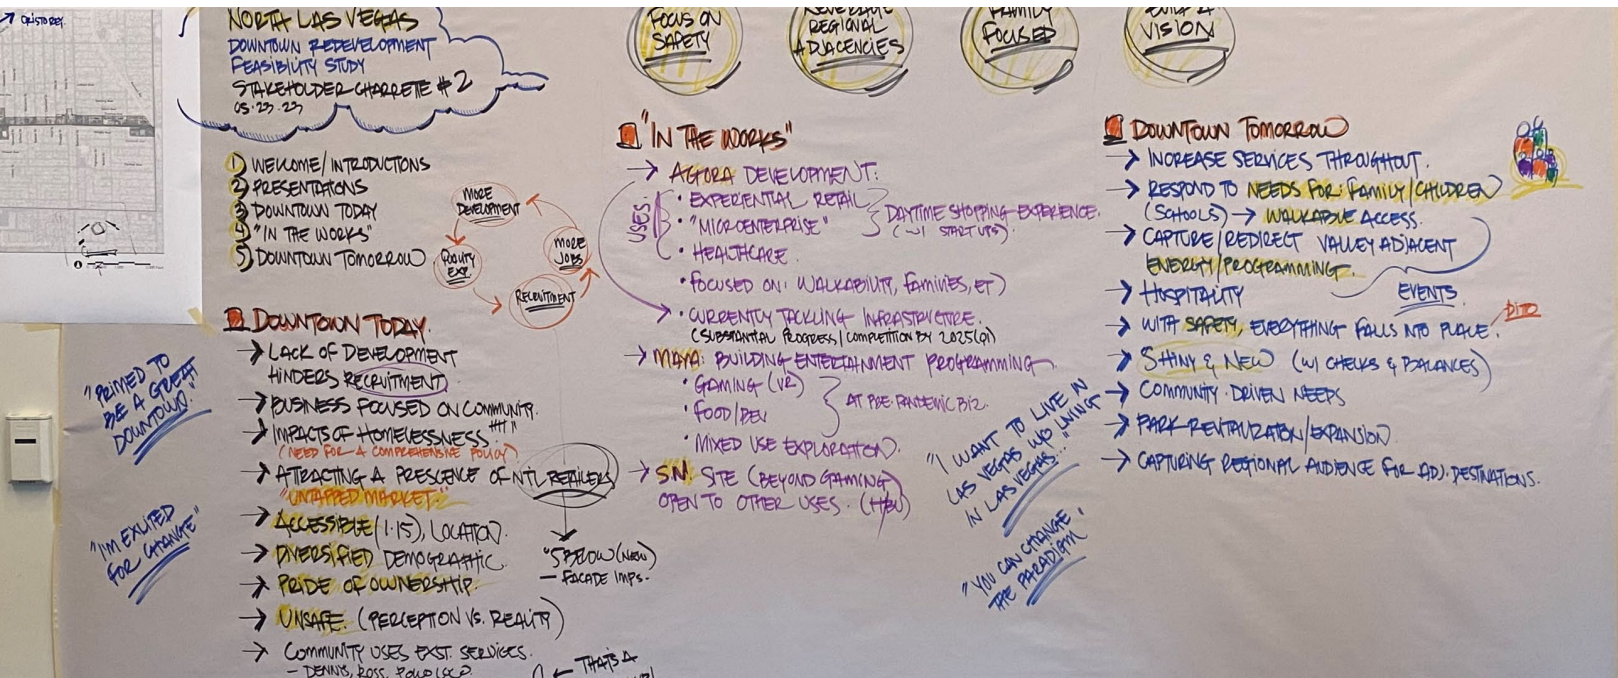 NORTH LAS VEGAS
DOWNTOWN REDEVELOPMENT
FEASIBILITY STUDY
STAKEHOLDER CHARRETE #2
05.23.23
1 WELCOME/INTRODUCTIONS
2 PRESENTATIONS
3 DOWNTOWN TODAY
4 "IN THE WORKS"
5 DOWNTOWN TOMORROW
MORE
DEVELOPMENT
MORE
JOBS
RECRUITMENT
EXP.
FOCUS ON
SAFETY
REGIONAL
ADJACENCIES
FAMILY
FOCUSED
VISION
DOWNTOWN TODAY.
→ LACK OF DEVELOPMENT
HINDERS RECRUITMENT
→ BUSINESS FOCUSED ON COMMUNITY.
→ IMPACTS OF HOMELESSNESS
(NEED FOR A COMPREHENSIVE POLICY)
→ ATTRACTING A PRESCENCE OF NTL RETAILERS
"UNTAPPED MARKET."
→ ACCESSIBLE (I-15), LOCATION.
→ DIVERSIFIED DEMOGRAPHIC.
→ PRIDE OF OWNERSHIP.
→ UNSAFE. (PERCEPTION VS. REALITY)
→ COMMUNITY USES EXST. SERVICES.
- DENNYS, ROSS,
"5 BELOW (NEW)
- FACADE IMPS.
← THAT'S A
"PRIMED TO
BE A GREAT
DOWNTOWN."
"I'M EXCITED
FOR CHANGE"
"IN THE WORKS"
→ AGORA DEVELOPMENT:
USES:
• EXPERIENTIAL RETAIL
• "MICROENTERPRISE"
• HEALTHCARE
DAYTIME SHOPPING EXPERIENCE.
(W/ START UPS)
• FOCUSED ON: WALKABILITY, FAMILIES, ET)
→ • CURRENTLY TACKLING INFRASTRUCTURE.
(SUBSTANTIAL PROGRESS/COMPETITION BY 2025 (Q1)
→ MAYA: BUILDING ENTERTAINMENT PROGRAMMING
• GAMING (VR)
• FOOD/BEV
AT PRE-PANDEMIC BIZ.
• MIXED USE EXPLORATION.
→ S.N. SITE (BEYOND GAMING)
OPEN TO OTHER USES. (HBU)
"I WANT TO LIVE IN
LAS VEGAS W/O LIVING
IN LAS VEGAS..."
"YOU CAN CHANGE
THE PARADIGM"
DOWNTOWN TOMORROW
→ INCREASE SERVICES THROUGHOUT.
→ RESPOND TO NEEDS FOR: FAMILY/CHILDREN
(SCHOOLS) → WALKABLE ACCESS.
→ CAPTURE/REDIRECT VALLEY ADJACENT
ENERGY/PROGRAMMING.
EVENTS
→ HOSPITALITY
→ WITH SAFETY, EVERYTHING FALLS INTO PLACE.
DITO
→ SHINY & NEW (W/ CHECKS & BALANCES)
→ COMMUNITY-DRIVEN NEEDS
→ PARK RESTAURATION/EXPANSION
→ CAPTURING REGIONAL AUDIENCE FOR ADJ. DESTINATIONS.